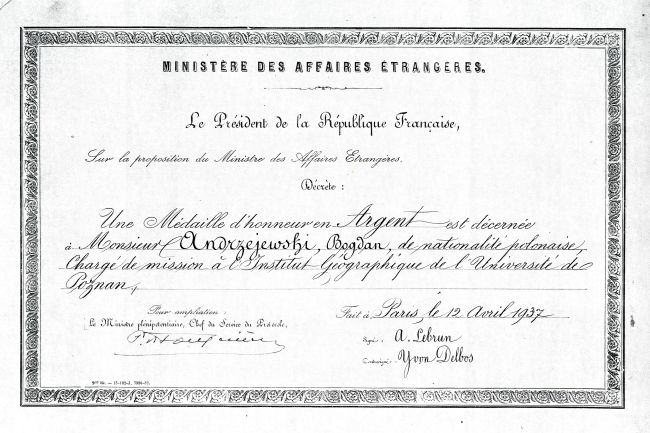 MINISTÈRE DES AFFAIRES ÉTRANGERES.
Le Président de la République Française,
Sur la proposition du Ministre des Affaires Etrangères.
Décrète :
Une Médaille d'honneur en Argent est décernée
à Monsieur Andrzejewski, Bogdan, de nationalité polonaise,
Chargé de mission à l'Institut Géographique de l'Université de
Poznan,
Pour ampliation :
Le Ministre plénipotentiaire, Chef du Service du Protocole,
Fait à Paris, le 12 Avril 1937
Signé : A. Lebrun
Contresigné : Yvon Delbos